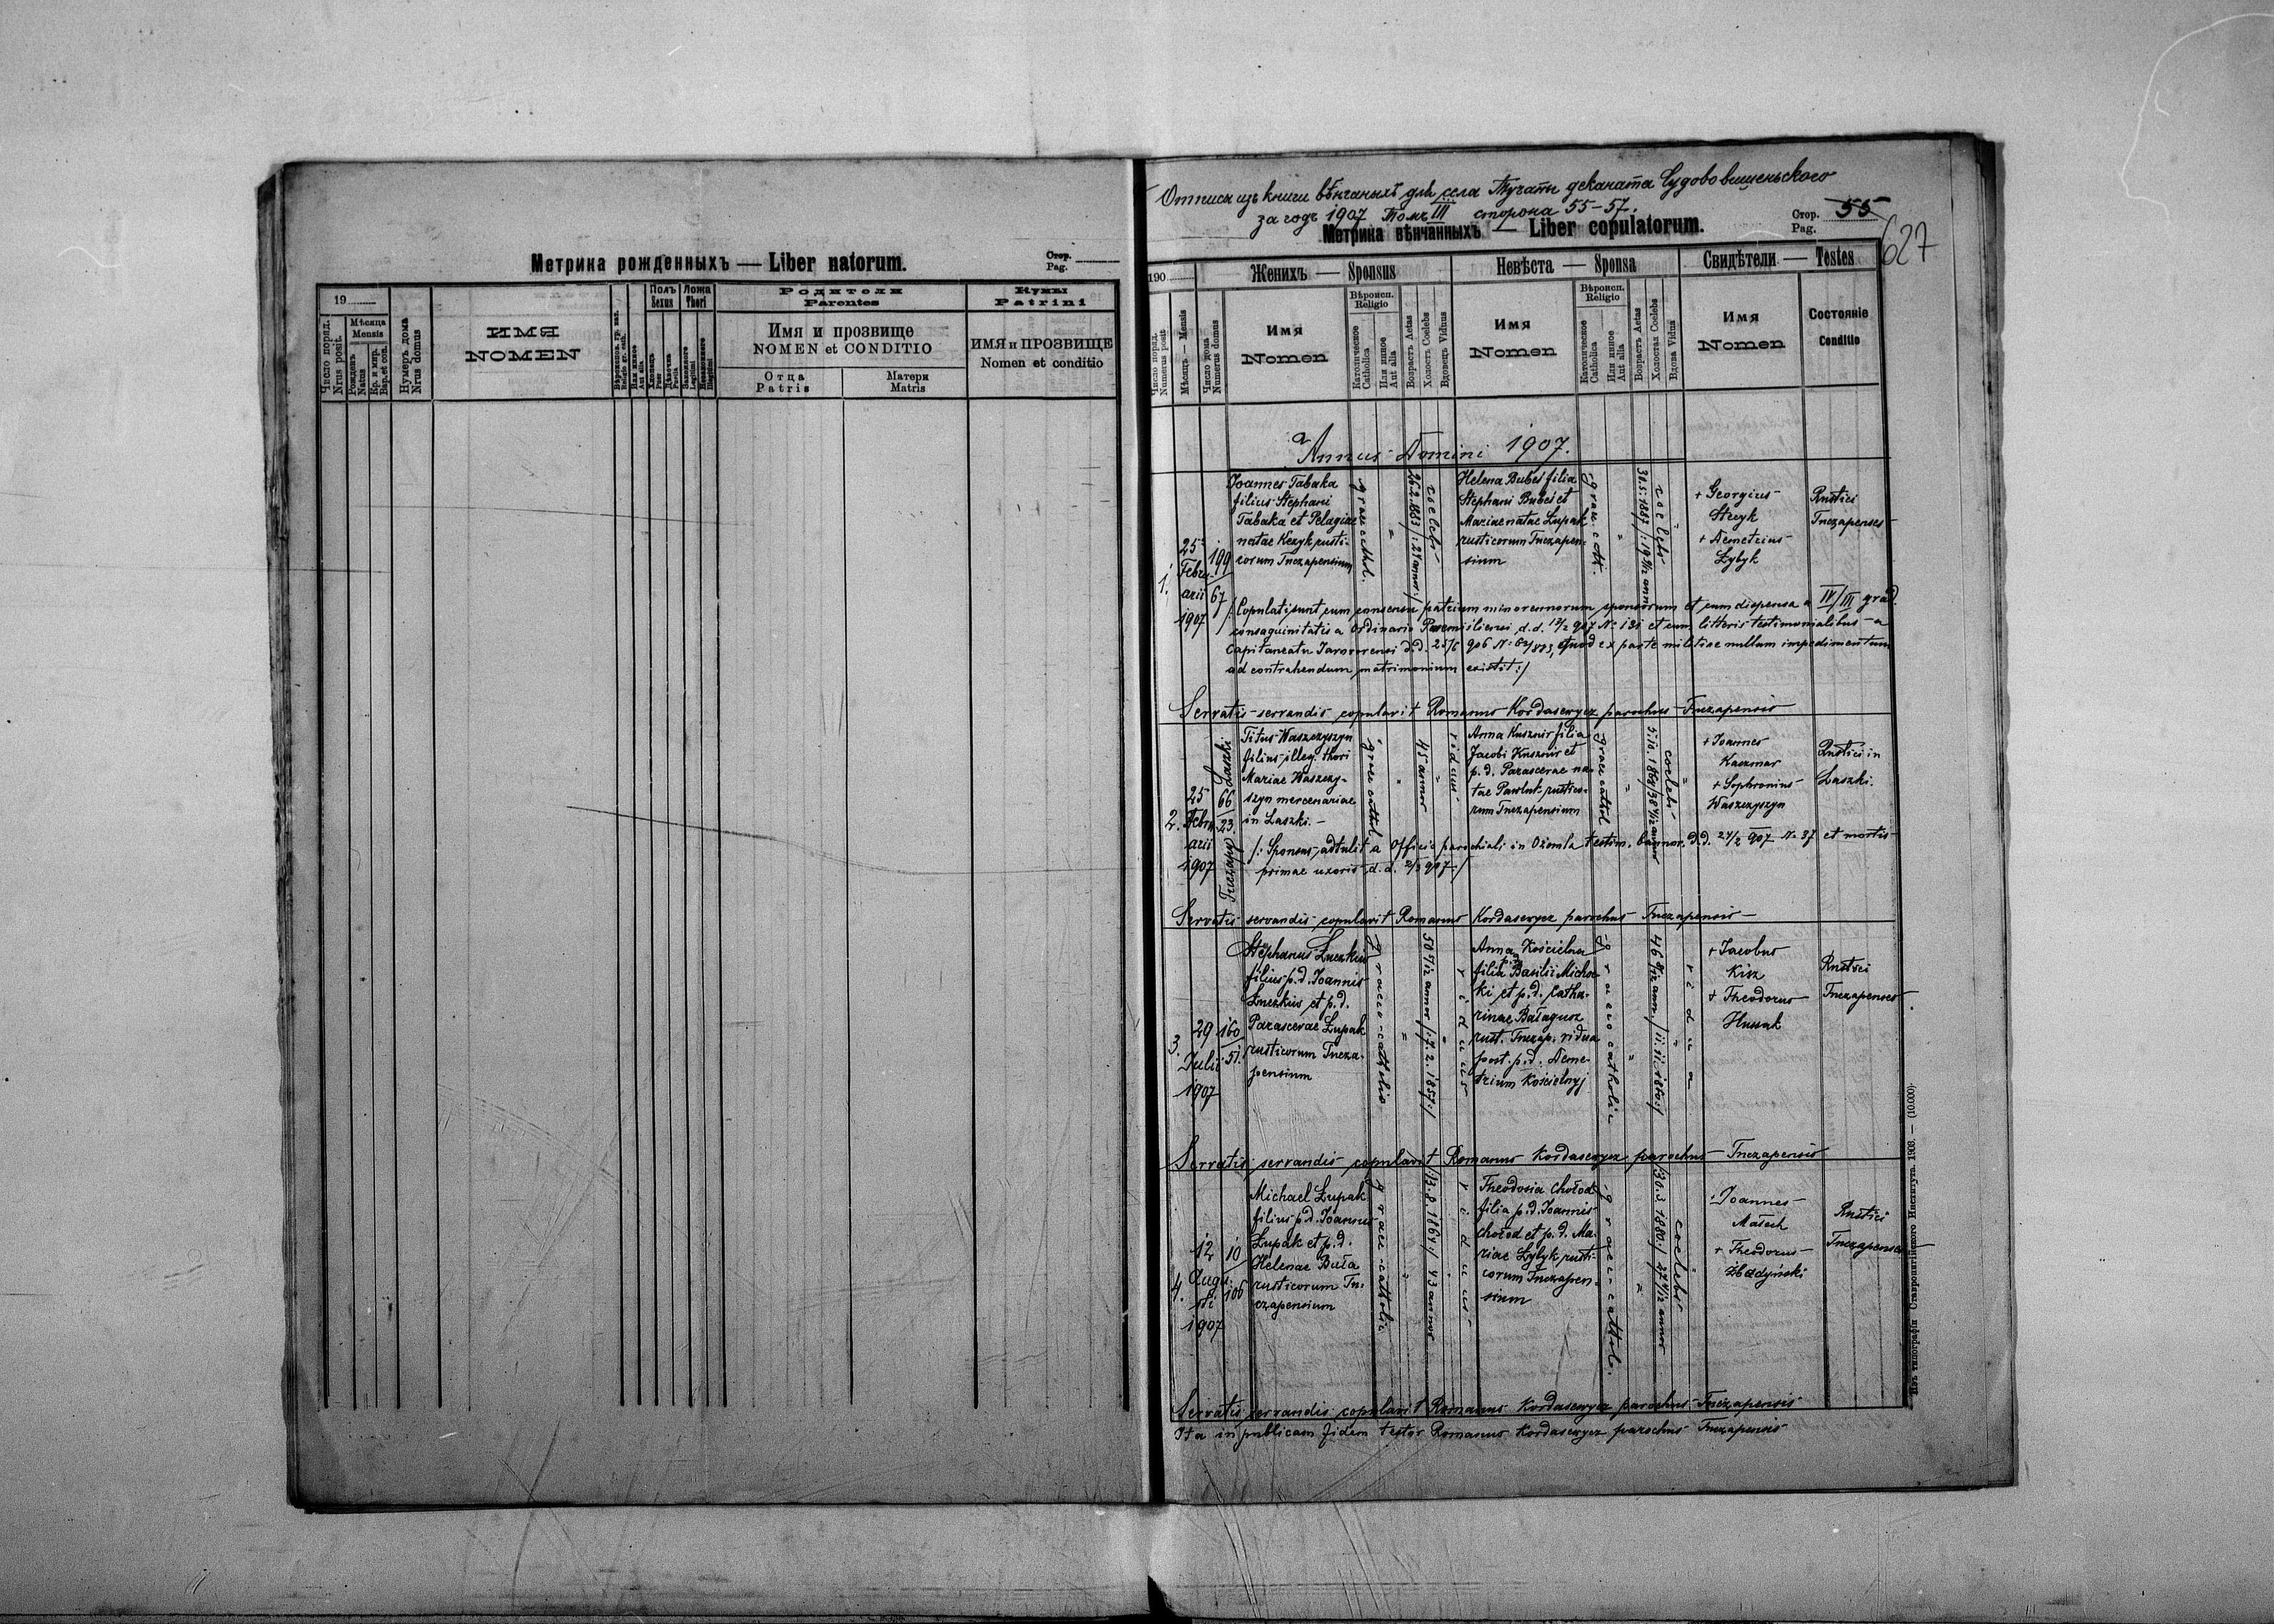 Метрика рожденныхъ — Liber natorum.
Стор.
Pag.
19
Число поряд.
Nrus posit.
Мѣсяца
Mensis
Рожденъ
Natus
Кр. и мѵр.
Bap. et con.
Нумеръ дома
Nrus domus
ИМЯ
NOMEN
Полъ
Sexus
Ложа
Thori
Родители
Parentes
Имя и прозвище
NOMEN et CONDITIO
Отца
Patris
Матери
Matris
Кумы
Patrini
ИМЯ и ПРОЗВИЩЕ
Nomen et conditio
Отпись изъ книги вѣнчаныхъ для села Тучапы деканата Судововишенського
за годъ 1907 Томъ III сторона 55-57.
Метрика вѣнчанныхъ — Liber copulatorum.
Стор.
Pag.
55
627
190
Женихъ — Sponsus
Невѣста — Sponsa
Свидѣтели — Testes
Число поряд.
Numerus posit
Мѣсяць — Mensis
Число дома
Numerus domus
Имя
Nomen
Вѣроисп.
Religio
Католическое
Catholica
Или иное
Aut alia
Возрастъ Aetas
Холостъ Coelebs
Вдовецъ Viduus
Имя
Nomen
Вѣроисп.
Religio
Католическое
Catholica
Или иное
Aut alia
Возрастъ Aetas
Холостая Coelebs
Вдова Vidua
Имя
Nomen
Состояніе
Conditio
Annus Domini 1907.
1.
25
Febru-
arii
1907
199
67
Joannes Tabaka
filius Stephani
Tabaka et Pelagiae
natae Kezyk rusti-
corum Tuczapensium
graec cathol.
26.2.1883 /:24 annor:/
coelebs
Helena Bubes filia
Stephani Bubes et
Mariae natae Łupak
rusticorum Tuczapen-
sium
graec cath.
coelebs
+ Georgius
Stecyk
+ Demetrius
Łybyk
Rustici
Tuczapenses
/:Copulati sunt cum consensu patrum minorennorum sponsorum et cum dispensa a IV/III grad.
consaguinitatis a Ordinario Premisliensi d.d. 12/2 907 No 131 et cum litteris testimonialibus a
Capitaneatu Javorovensi d.d. 25/6 906 quod ex parte militiae nullum impedimentum
ad contrahendum matrimonium existit:/
Servatis servandis copulavit Romanus Kordasewycz parochus Tuczapensis
2.
25
Febru
arii
1907
Laszki
66
23.
Tuczapy
Titus Waszczyszyn
filius illeg. thori
Mariae Waszczy-
szyn mercenariae
in Laszki.
graec cathol
45 annor
viduus
Anna Kusznir filia
Jacobi Kusznir et
p.d. Parascevae na-
tae Pawluk rustico-
rum Tuczapensium
graec cathol
coelebs
+ Joannes
Kaczmar
+ Sophronius
Waszczyszyn
Rustici in
Laszki.
/: Sponsus adtulit a Officio parochiali in Ożomla testim. bannor. d.d. 24/2 907 No 37 et mortis
primae uxoris d.d. 2/2 907:/
Servatis servandis copulavit Romanus Kordasewycz parochus Tuczapensis
3.
29
Julii
1907
160
51.
Stephanus Łuczkiw
filius p.d. Joannis
Łuczkiw et p.d.
Parascevae Łupak
rusticorum Tucza-
pensium
graeco-catholic
50 5/12 annor /:7.2.1857:/
viduus
Anna Kościelna
filia Basilii Micha-
ki et p.d. Catha-
rinae Bałagusz
rust. Tuczap. vidua
post. p.d. Deme-
trium Kościelnyj
graeco catholic
46 8/12 ann. /:11.11.1860:/
vidua
+ Jacobus
Kisz
+ Theodorus
Husak
Rustici
Tuczapenses
Servatis servandis copulavit Romanus Kordasewycz parochus Tuczapensis
4.
12
Augu-
sti
1907
10
106
Michael Łupak
filius p.d. Joannis
Łupak et p.d.
Helenae Buła
rusticorum Tu-
czapensium
graec-catholic
/:3.8.1864:/ 43 annor
viduus
Theodosia Chołod
filia p.d. Joannis
Chołod et p.d. Ma-
riae Łybyk rusti-
corum Tuczapen-
sium
graec-cathol.
/:30.3 1880:/ 27 4/12 annor
coelebs
Joannes
Małech
+ Theodorus
Żbadyński
Rustici
Tuczapenses
Servatis servandis copulavit Romanus Kordasewycz parochus Tuczapensis
Ita in publicam fidem testor Romanus Kordasewycz parochus Tuczapensis
Изъ типографіи Ставропигійского Института. 1903. — (10.000)